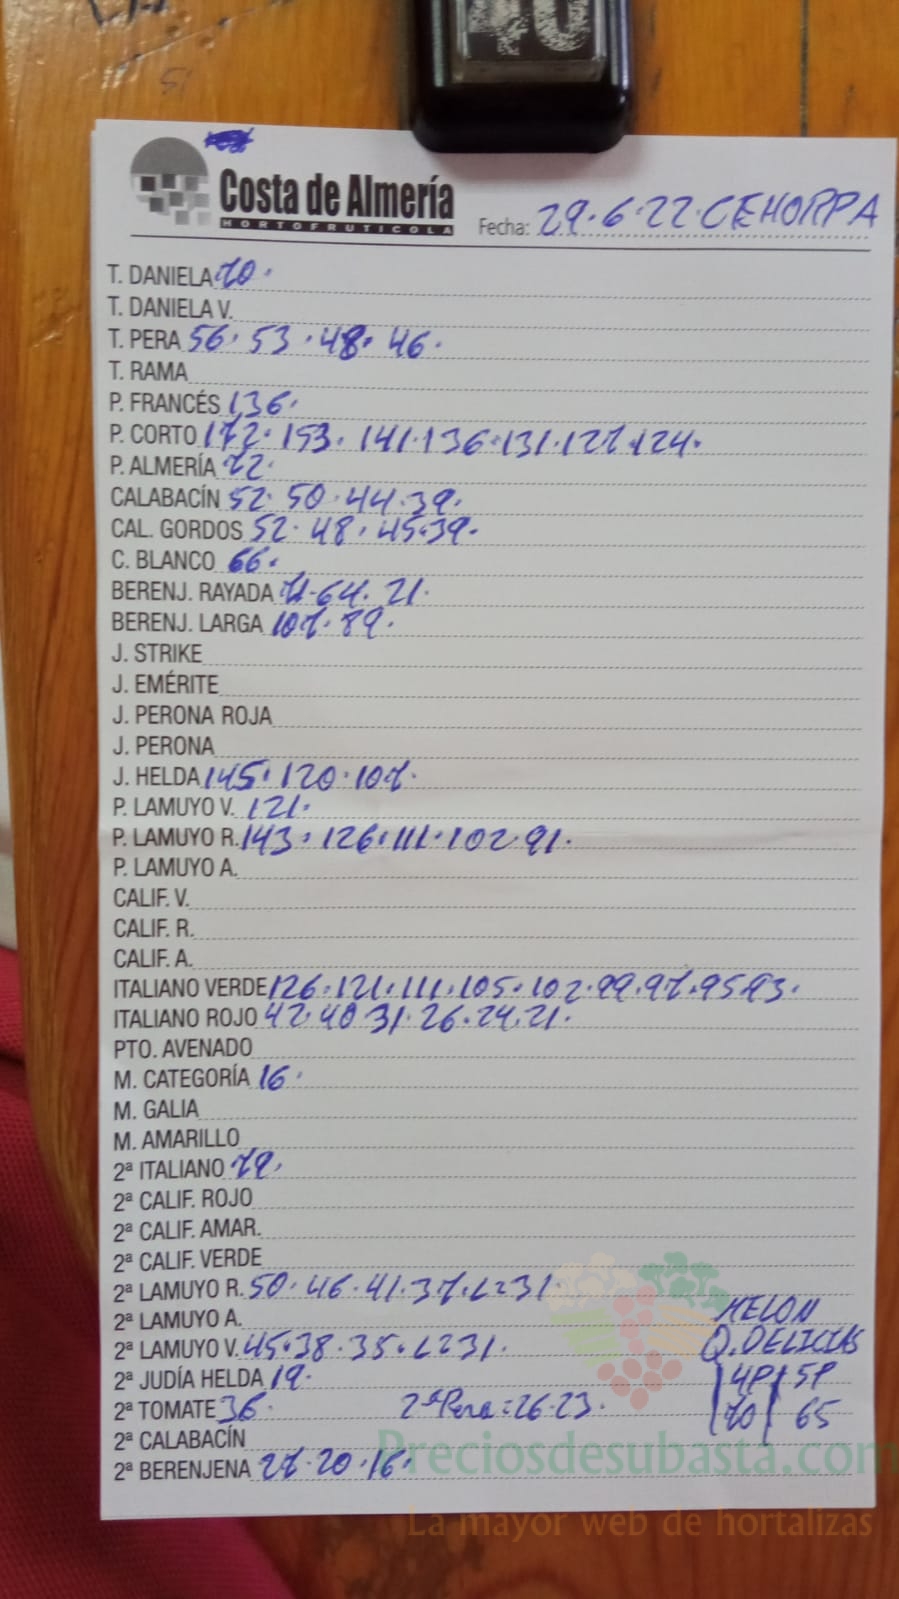 40
Costa de Almería
HORTOFRUTICOLA
Fecha: 29.6.22.CEHORPA
T. DANIELA 70.
T. DANIELA V.
T. PERA 56. 53. 48. 46.
T. RAMA
P. FRANCÉS 136.
P. CORTO 172. 153. 141.136.131.127.124.
P. ALMERÍA 72.
CALABACÍN 52. 50. 44.39.
CAL. GORDOS 52. 48. 45.39.
C. BLANCO 66.
BERENJ. RAYADA 71.64. 21.
BERENJ. LARGA 107. 89.
J. STRIKE
J. EMÉRITE
J. PERONA ROJA
J. PERONA
J. HELDA 145. 120. 107.
P. LAMUYO V. 121.
P. LAMUYO R. 143. 126.111.102.91.
P. LAMUYO A.
CALIF. V.
CALIF. R.
CALIF. A.
ITALIANO VERDE 126.121.111.105.102.99.97.95.93.
ITALIANO ROJO 42.40 31.26.24.21.
PTO. AVENADO
M. CATEGORÍA 16.
M. GALIA
M. AMARILLO
2ª ITALIANO 79.
2ª CALIF. ROJO
2ª CALIF. AMAR.
2ª CALIF. VERDE
2ª LAMUYO R. 50.46.41.37.L231.
2ª LAMUYO A.
MELON
2ª LAMUYO V. 45.38.35.L231.
Q.DELICIAS
2ª JUDÍA HELDA 19.
4P 5P
2ª TOMATE 36. 2ª Pera=26.23.
70 65
2ª CALABACÍN
2ª BERENJENA 27.20.16.
Preciosdesubasta.com
La mayor web de hortalizas